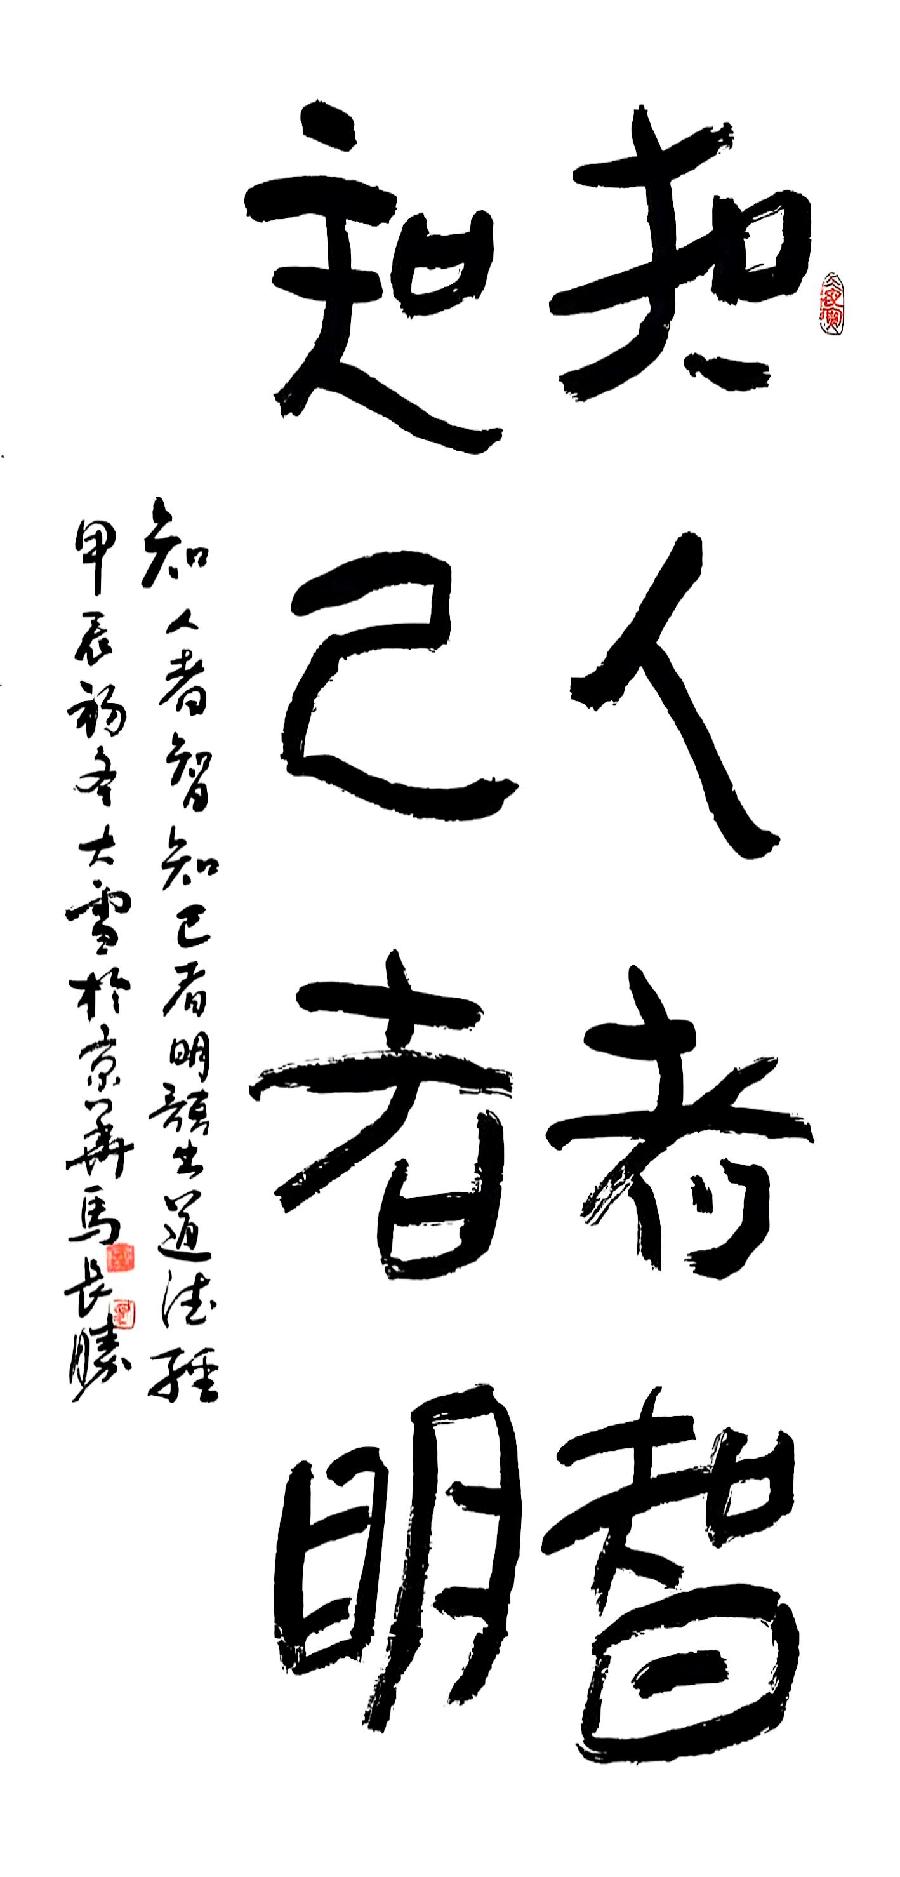 知人者智
知己者明
知人者智知己者明题出道德經
甲辰初冬大雪於京華馬長勝